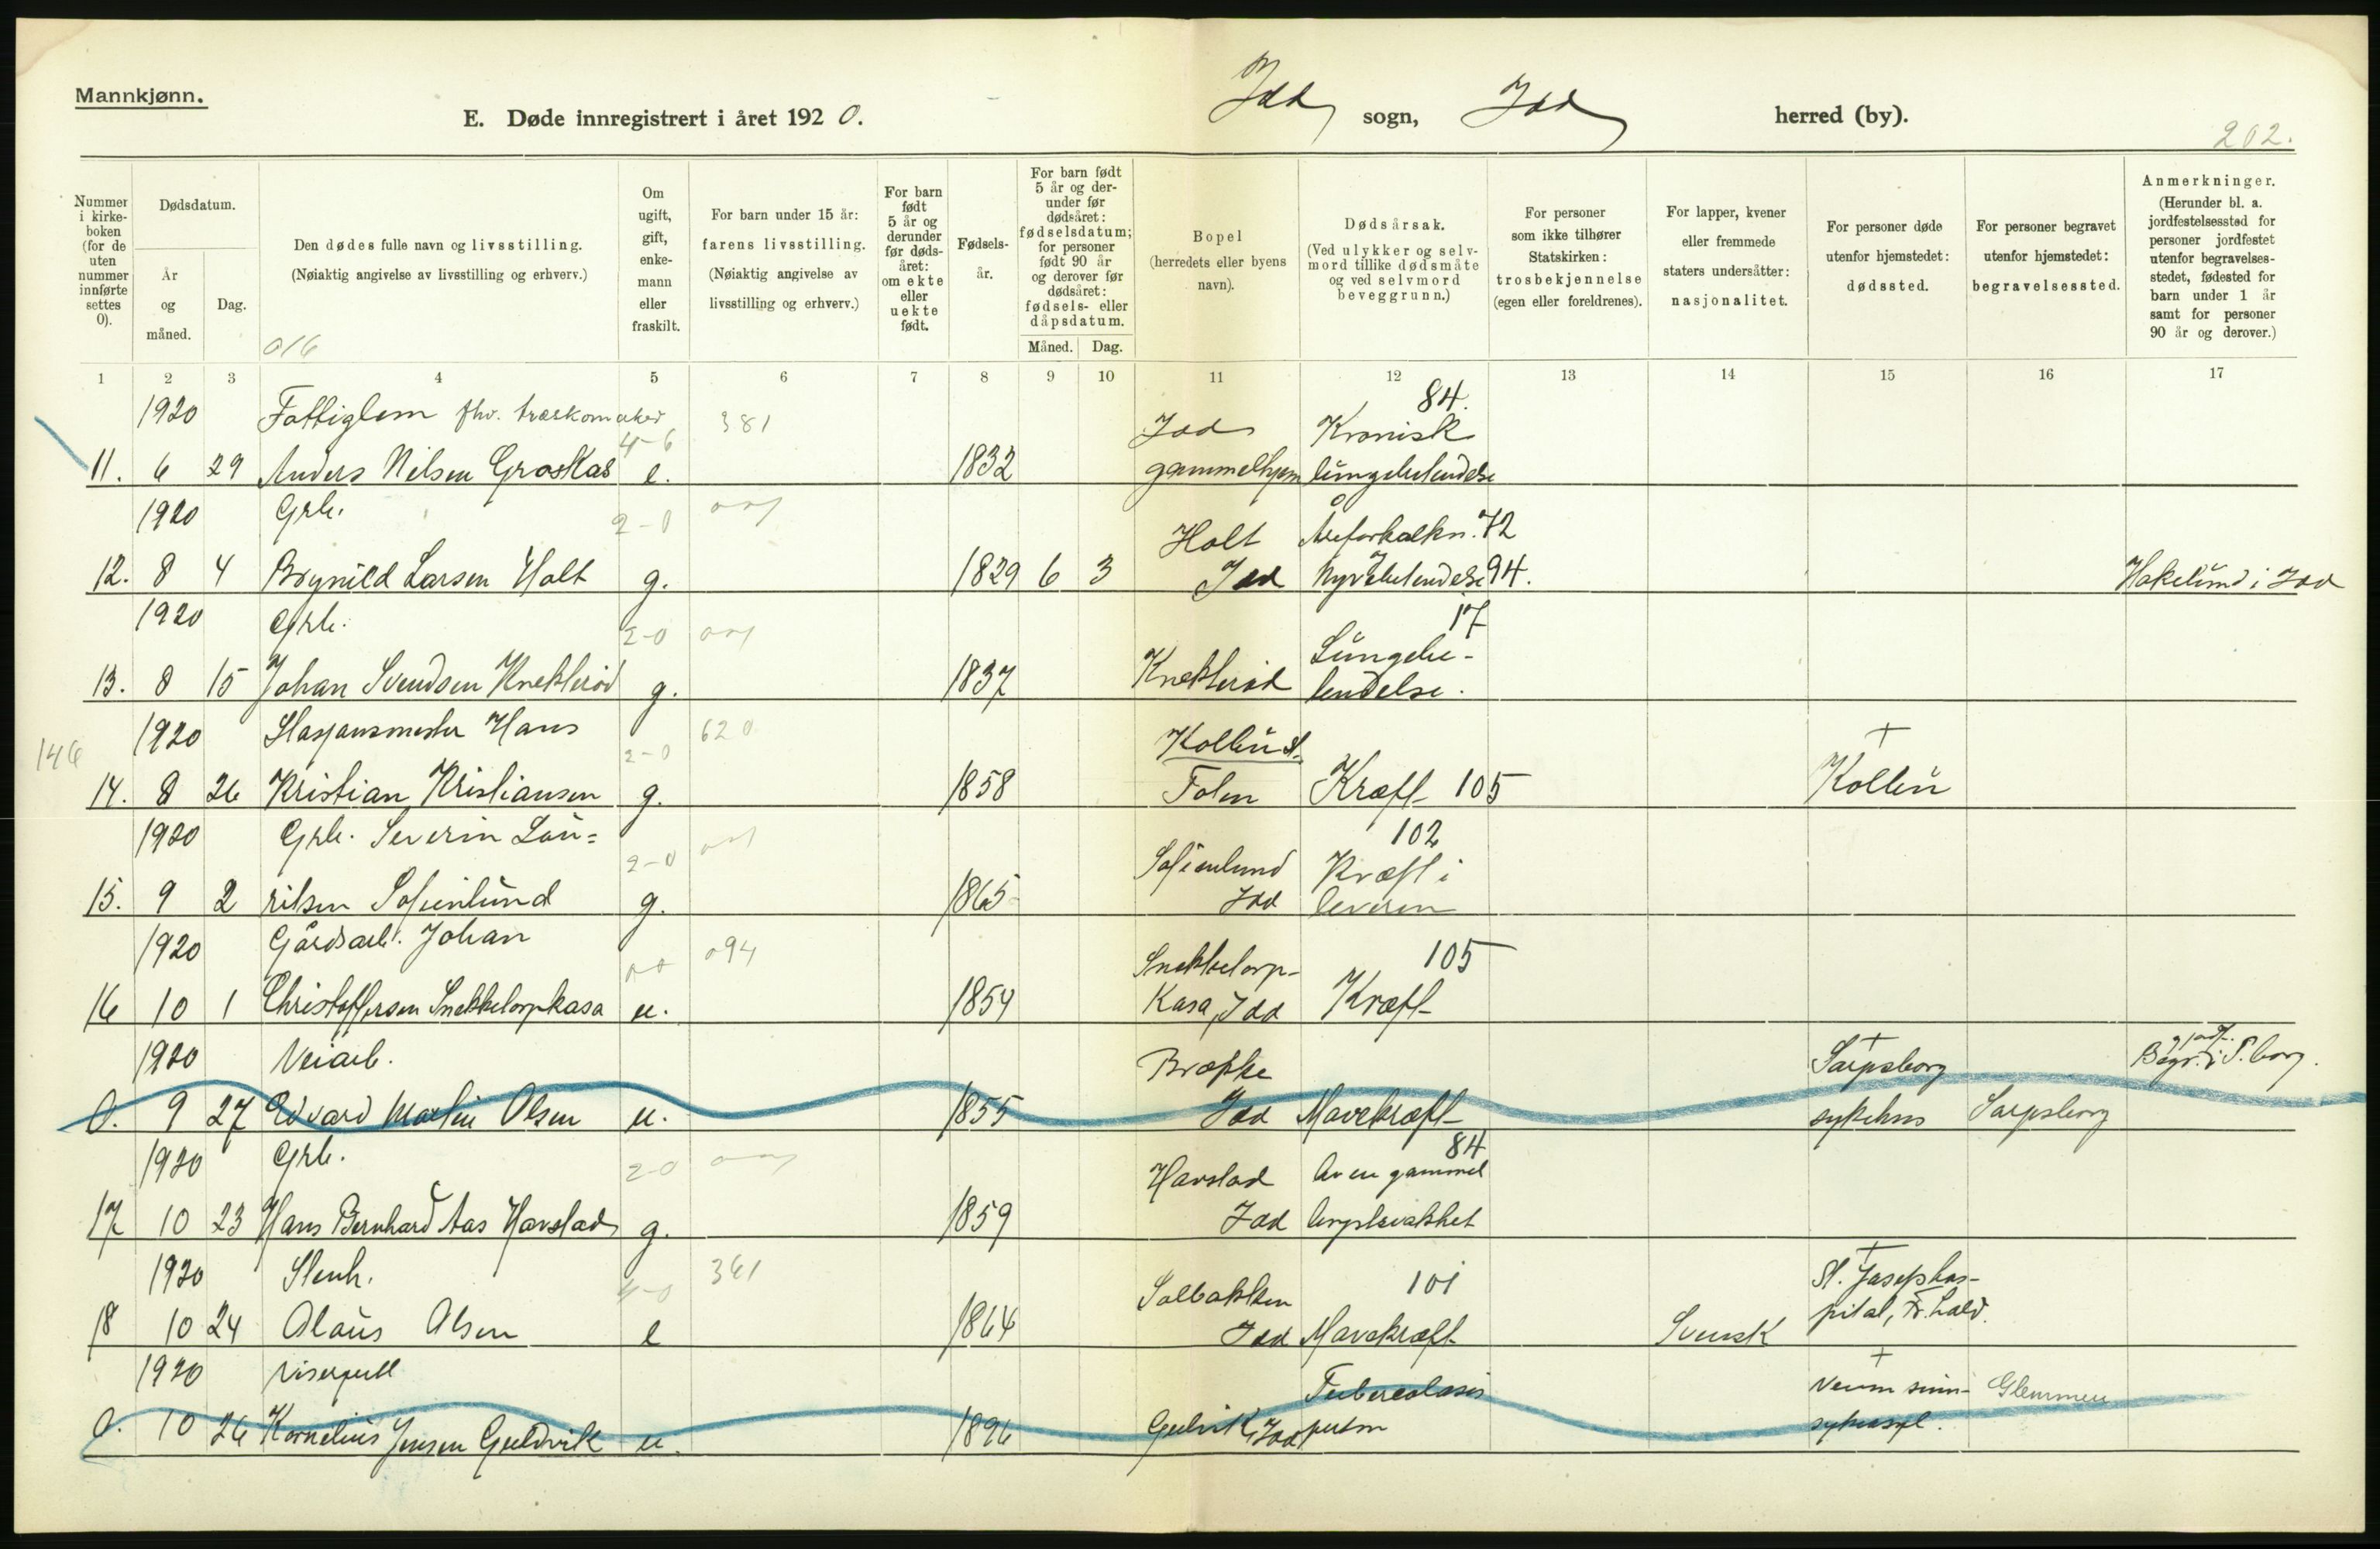 Mannkjønn.
E. Døde innregistrert i året 1920.
Idd sogn, Idd herred (by).
202.
Nummer i kirkeboken (for de uten nummer innførte settes 0).
Dødsdatum.
År og måned.
Dag.
Den dødes fulle navn og livsstilling.
(Nøiaktig angivelse av livsstilling og erhverv.)
016
Om ugift, gift, enkemann eller fraskilt.
For barn under 15 år: farens livsstilling.
(Nøiaktig angivelse av livsstilling og erhverv.)
For barn født 5 år og derunder før dødsåret: om ekte eller uekte født.
Fødselsår.
For barn født 5 år og derunder før dødsåret: fødselsdatum; for personer født 90 år og derover før dødsåret: fødsels- eller dåpsdatum.
Måned. Dag.
Bopel
(herredets eller byens navn).
Dødsårsak.
(Ved ulykker og selvmord tillike dødsmåte og ved selvmord beveggrunn.)
For personer som ikke tilhører Statskirken: trosbekjennelse (egen eller foreldrenes).
For lapper, kvener eller fremmede staters undersåtter: nasjonalitet.
For personer døde utenfor hjemstedet: dødssted.
For personer begravet utenfor hjemstedet: begravelsessted.
Anmerkninger.
(Herunder bl. a. jordfestelsessted for personer jordfestet utenfor begravelsesstedet, fødested for barn under 1 år samt for personer 90 år og derover.)
1 2 3 4 5 6 7 8 9 10 11 12 13 14 15 16 17
1920 Fattiglem fhv. træskomaker 4-6 381 Idd Kronisk 84.
11. 6 29 Anders Nilsen Graskas e. 1832 gammelhjem lungebetendelse
1920 Grb. 2-0 Holt Åreforkalkn. 72
12. 8 4 Brynild Larsen Holt g. 1829 6 3 Idd Nyrebetendelse 94. Hakelund i Idd
1920 Grb. 2-0 Lungebe- 17
13. 8 15 Johan Svendsen Knekterød g. 1837 Knekterød tendelse.
146 1920 Stasjonsmester Hans 2-0 620 Kollbu st. +
14. 8 26 Kristian Kristiansen g. 1858 Folen Kræft 105 Kollbu
1920 Grb. Severin Lau= 2-0 Sofienlund Kræft i 102
15. 9 2 ritsen Sofienlund g. 1865 Idd leveren
1920 Gårdsarb. Johan 094 Snekketorp- 105
16 10 1 Christoffersen Snekketorpkasa u. 1854 Kasa, Idd Kræft
1920 Veiarb. Brække + Sarpsborg Begr. i S.borg.
0. 9 27 Edvard Martin Olsen u. 1855 Idd Mavekræft sykehus Sarpsborg
1920 Grb. 2-0 Havstad Av en gammel 84
17 10 23 Hans Bernhard Aas Havstad g. 1859 Idd brystsvakhet
1920 Stenh. 4-0 361 Solbakken 101 + St. Josephhos-
18 10 24 Olaus Olsen e 1864 Idd Mavekræft Svensk pital, Fr.hald.
1920 visergutt Tuberculosis + Veum sinn- Glemmen
0. 10 26 Kornelius Jensen Guldvik u. 1896 Gulvik, Idd pulm sykeasyl.